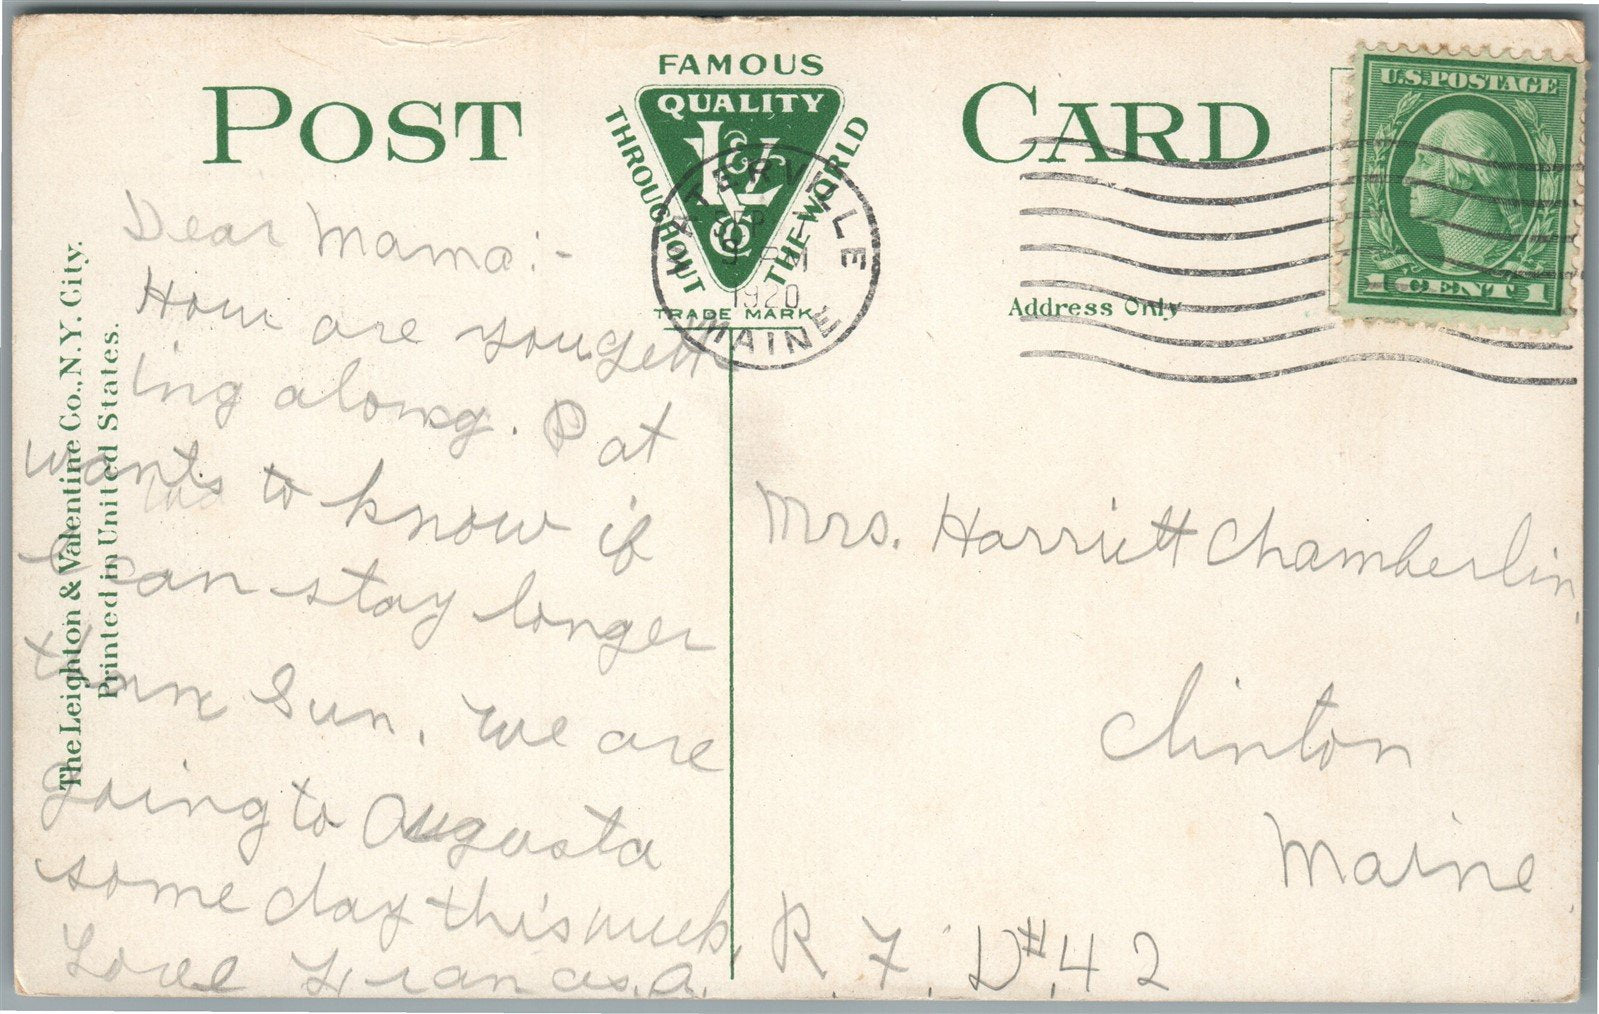 POST CARD
FAMOUS
QUALITY
THROUGHOUT
THE WORLD
LV
Co
TRADE MARK
U.S. POSTAGE
1 CENT 1
WATERVILLE
SEP
9 PM
1920
MAINE
Address Only
The Leighton & Valentine Co., N.Y. City.
Printed in United States.
Dear Mama:-
How are you gett
ing along. Pat
wants to know if
I can stay longer
than Sun. We are
going to Augusta
some day this week,
Love Frances. A.
Mrs. Harriett Chamberlin,
Clinton
Maine
R. F. D. #42